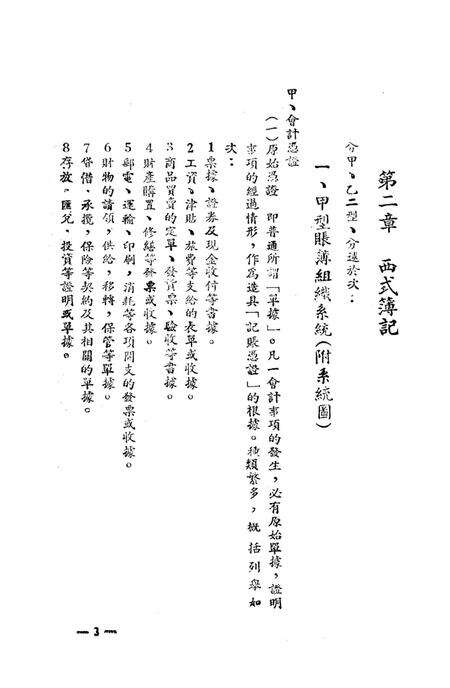 第二章　西式簿記
分甲、乙二型、分述於次：
一、甲型賬薄組織系統（附系統圖）
甲、會計憑證
（一）原始憑證　即普通所謂「單據」。凡一會計事項的發生，必有原始單據，證明
事項的經過情形，作為造具「記賬憑證」的根據。種類繁多，概括列舉如
次：
1票據、證券及現金收付等書據。
2工資、津貼、旅費等支給的表單或收據。
3商品買賣的定單、發貨票、驗收等書據。
4財產購置、修繕等發票或收據。
5郵電、運輸、印刷，消耗等各項開支的發票或收據。
6財物的請領，供給，移轉，保管等單據。
7借借．承攬，保險等契約及其相關的單據。
8存放。匯兌，投資等證明或單據。
— 3 —